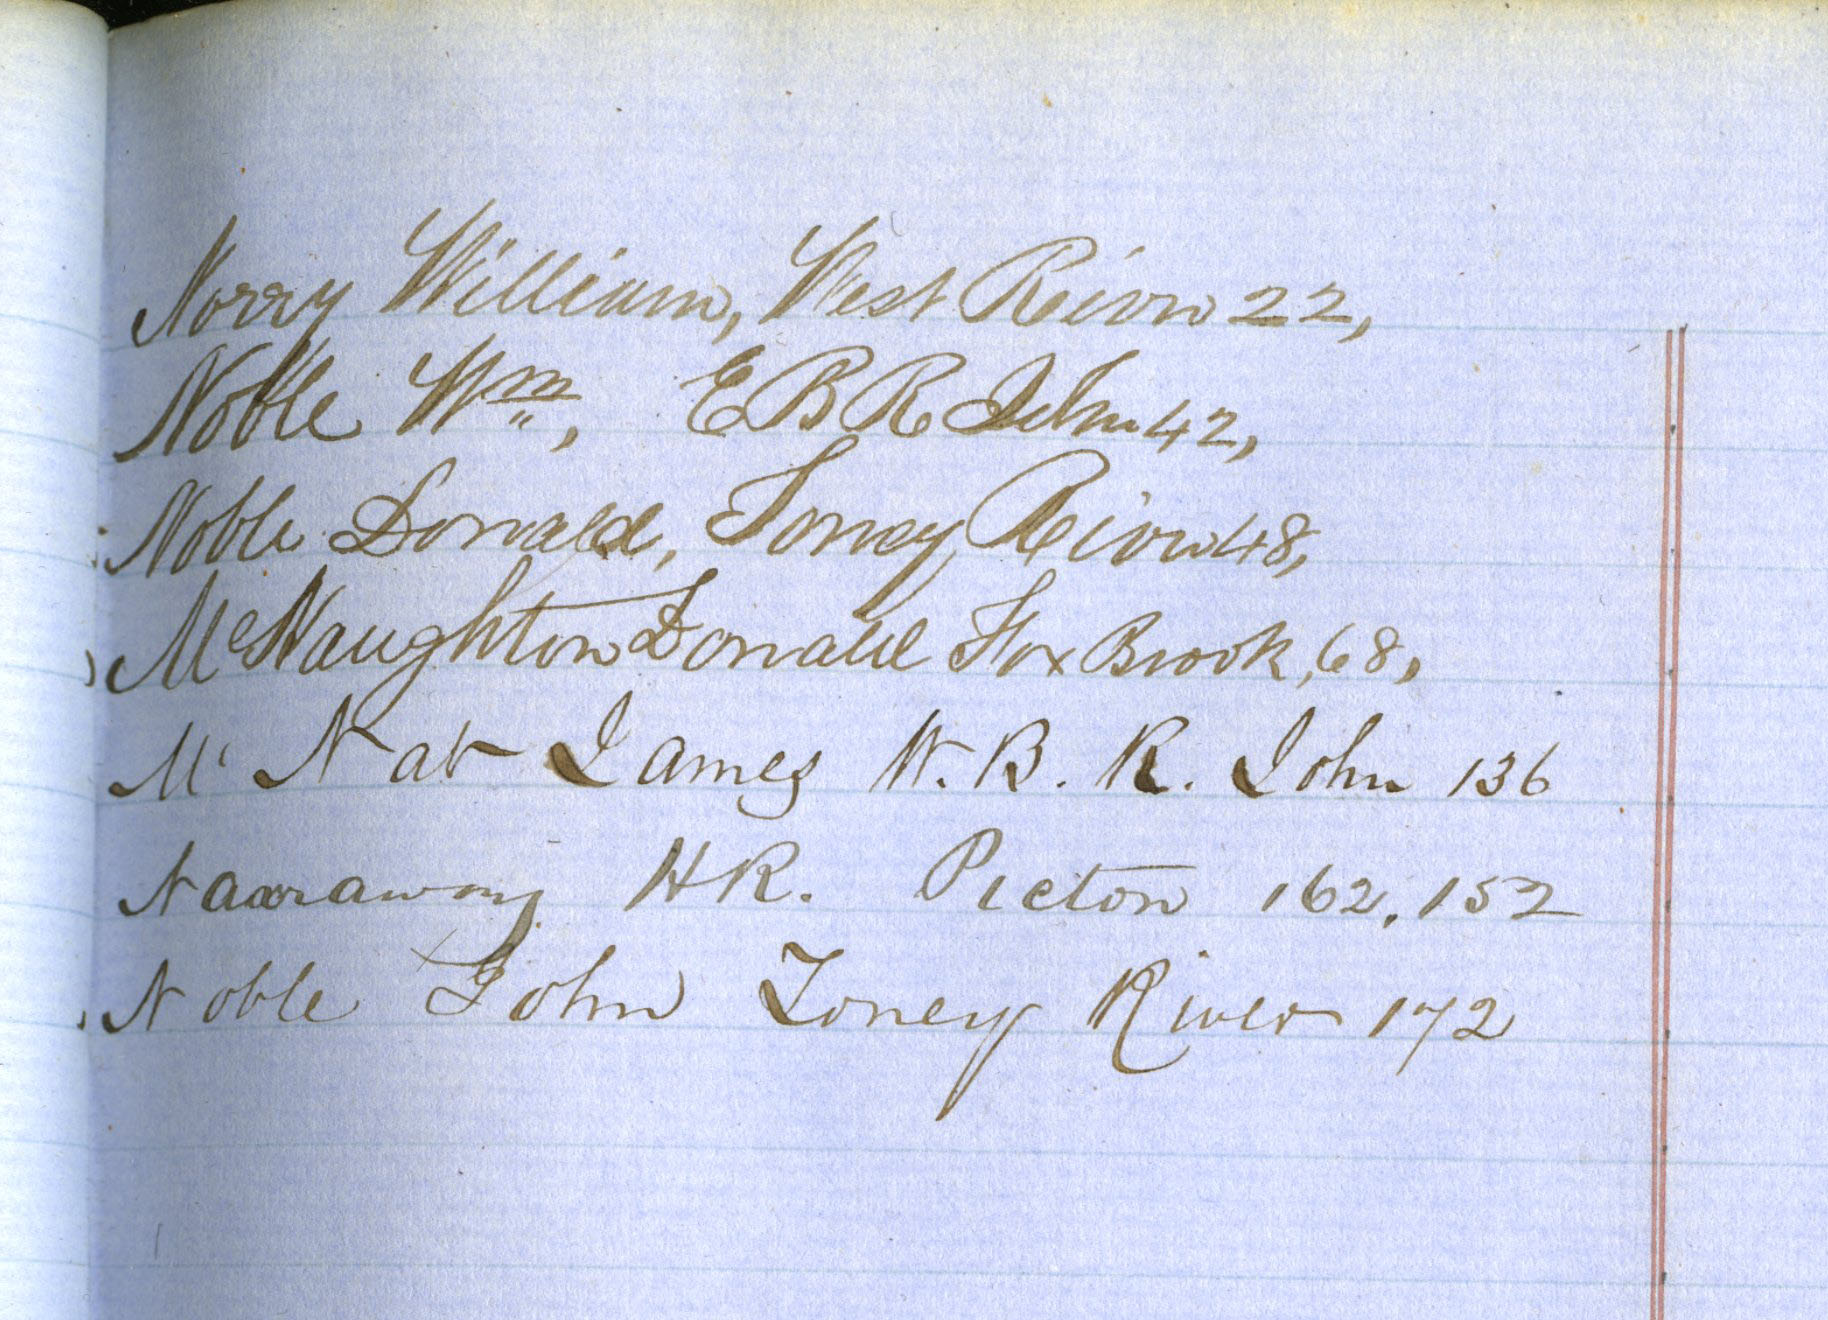 Norry William, West River 22,
Noble Wm, E B R John 42,
Noble Donald, Toney River 48,
McNaughton Donald Fox Brook, 68,
Mc Nab James W. B. R. John 136
Narraway H R. Pictou 162, 152
Noble John Toney River 172